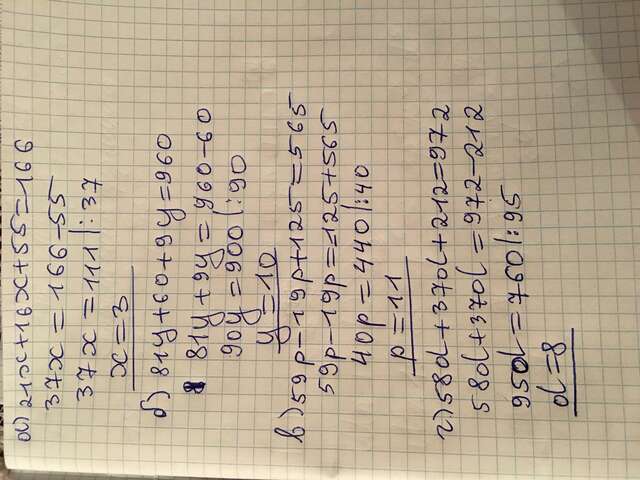 а) 21x+16x+55=166
37x=166-55
37x=111|:37
x=3
б) 81y+60+9y=960
81y+9y=960-60
90y=900|:90
y=10
в) 59p-19p+125=565
59p-19p=-125+565
40p=440|:40
p=11
г) 58d+37d+212=972
58d+37d=972-212
95d=760|:95
d=8